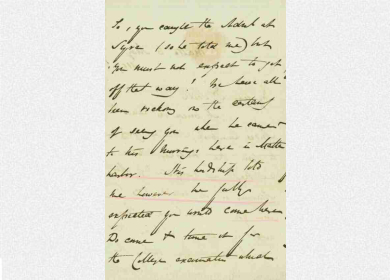 So, you caught the Adml at
Syra (so he told me) but
you must not expect to get
off that way! We have all
been on the
of seeing you when he came
to his moorings here in Malta
harbor. His lordship told
me however he fully
expected you would come here.
Do come & time it for
the College examination which